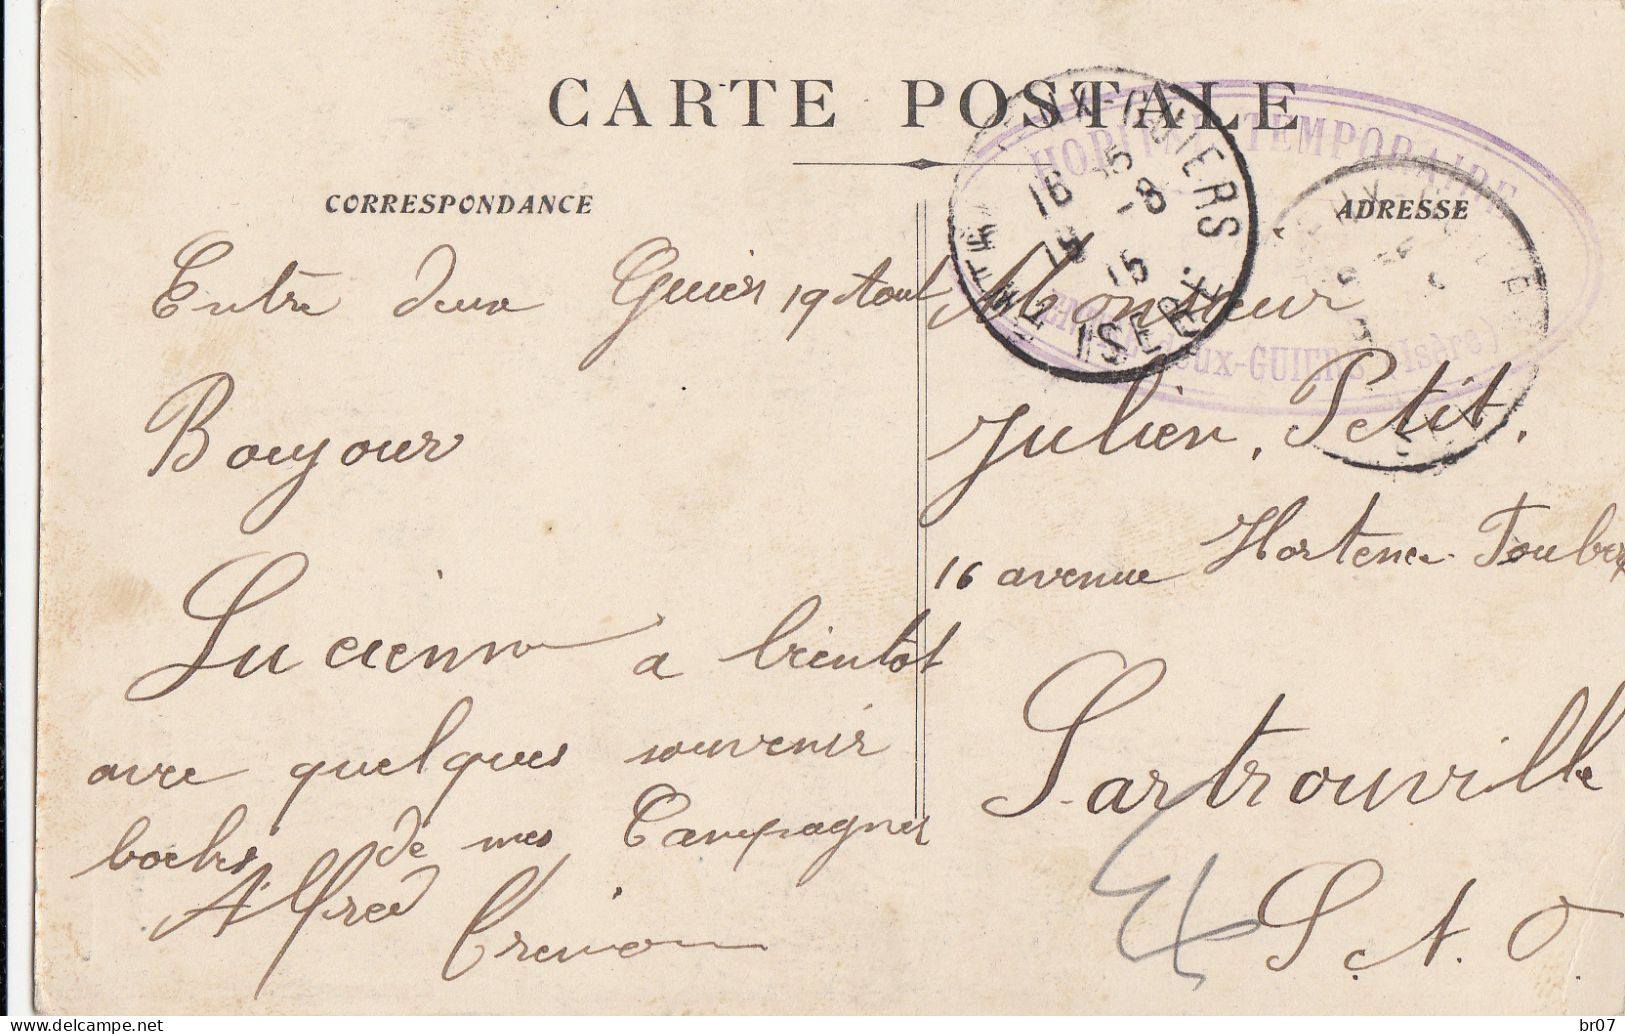 CARTE POSTALE
CORRESPONDANCE
ADRESSE
HOPITAL TEMPORAIRE
deux-GUIERS (Isère)
GUIERS
15
16 -8
15
ISERE
Entre deux Guier 19 Aout
Boujour
Lucienne a bientôt
avec quelques souvenir
boches de mes Campagnes
Alfred
Monsieur
Julien, Petit,
16 avenue Hortense Foubert
Sartrouville
S. et. O.
br07